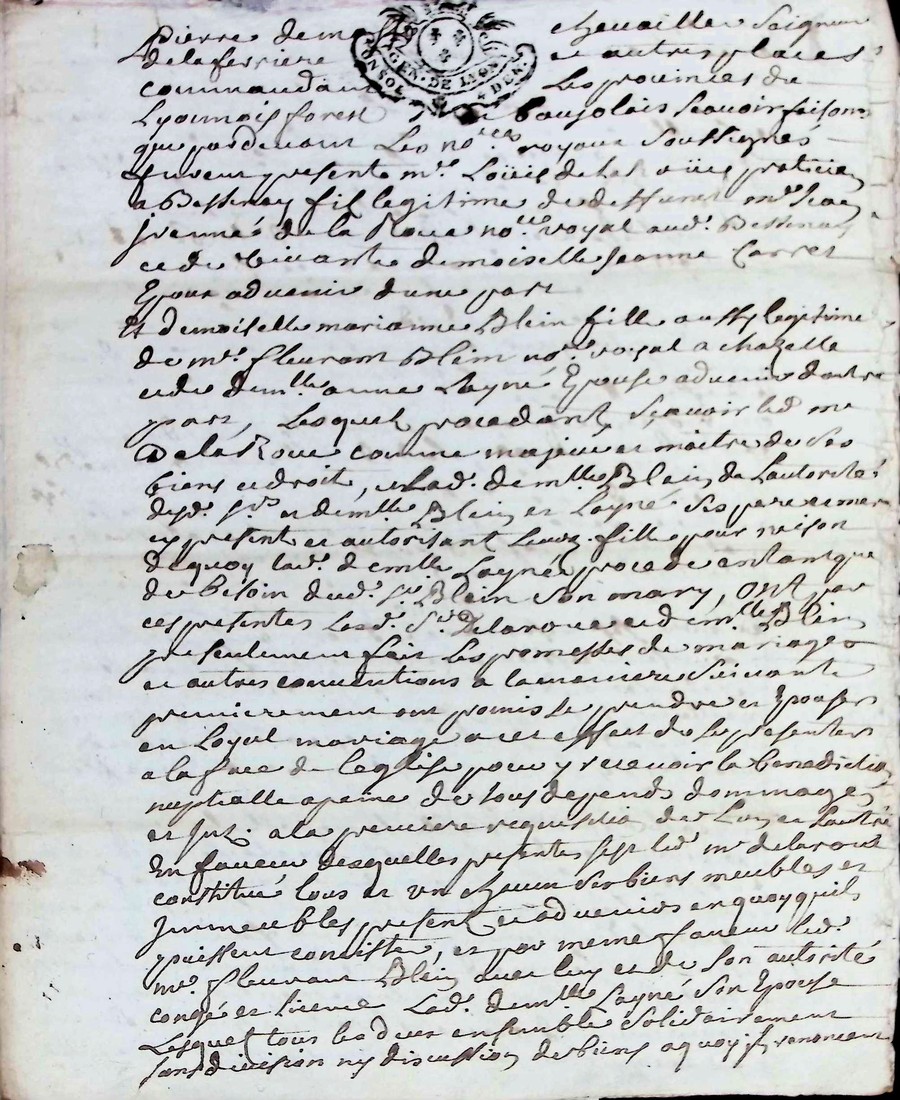 Pierre de chevaillier Seigneur
de la ferriere et autres places
commandant Les provinces de
Lyonnois forest Baujolois Scavoir faisons
que pardevant Les no.res royaux Soussignés
furent presents m.re Loüis de praticien
a Bessenay fils legitime de deffunct m.re Jean
de la Roue no.re royal aud. Bessenay
et de vivante demoiselle Jeanne Carret
Epoux advenir d'une part
Et demoiselle marianne Blein fille aussy legitime
de m.re fleurant Blein no.re royal a chazelle
et de dem.lle anne Layné Epouse advenir d'autre
part, Lesquels procedants, Scavoir led. m.re
De la Roue comme majeur et maitre de ses
biens et droits, et Lad. dem.lle Blein de Lautorité
desd. Sr. et dem.lle Blein et Layné Ses pere et mere
icy presents et autorisant Leurd. fille pour raison
de quoy lad. demlle Layné procede en tant que
de besoin dud. Sr. Blein Son mary, ont par
ces presentes Lesd. Sr. Delaroue et demlle Blein
presentement fait Les promesses de mariage
et autres conventions a la maniere Suivante
premierement ont promis Se prendre et Epouser
en Loyal mariage a cet effect de Se presenter
a la face de leglise pour y recevoir la benediction
nuptialle a peine de tous depends dommages
et Jnt. a la premiere requisition de Lun et Lautre
En faveur desquelles presentes led. m.re delaroue
constitué tous et un chacun Ses biens meubles et
Jmmeubles presents et advenir en quoy quils
puissent consister, et par meme faveur led.
m.re fleurant Blein avec luy et de Son autorité
congé et licence Lad. demlle Layné Son Epouse
Lesquels tous les deux ensemble Solidairement
sans division ny discussion de biens a quoy ils renoncent
GEN. DE LYON
DEN.